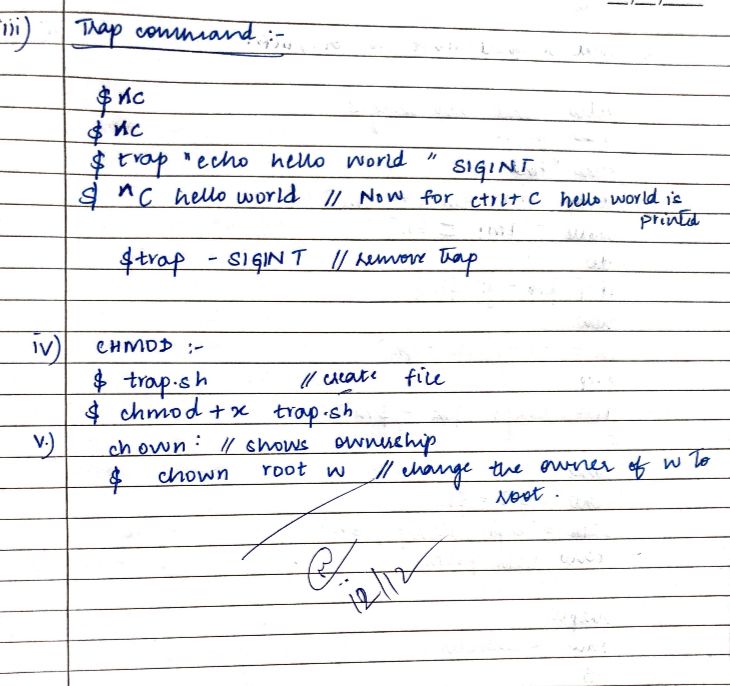 iii) Trap command :-
$ ^C
$ ^C
$ trap "echo hello world " SIGINT
$ ^C hello world // Now for ctrl+C hello world is
printed
$trap - SIGINT // remove Trap
iv) CHMOD :-
$ trap.sh // create file
$ chmod +x trap.sh
v.) chown : // shows ownership
$ chown root w // change the owner of w To
root.
12/12